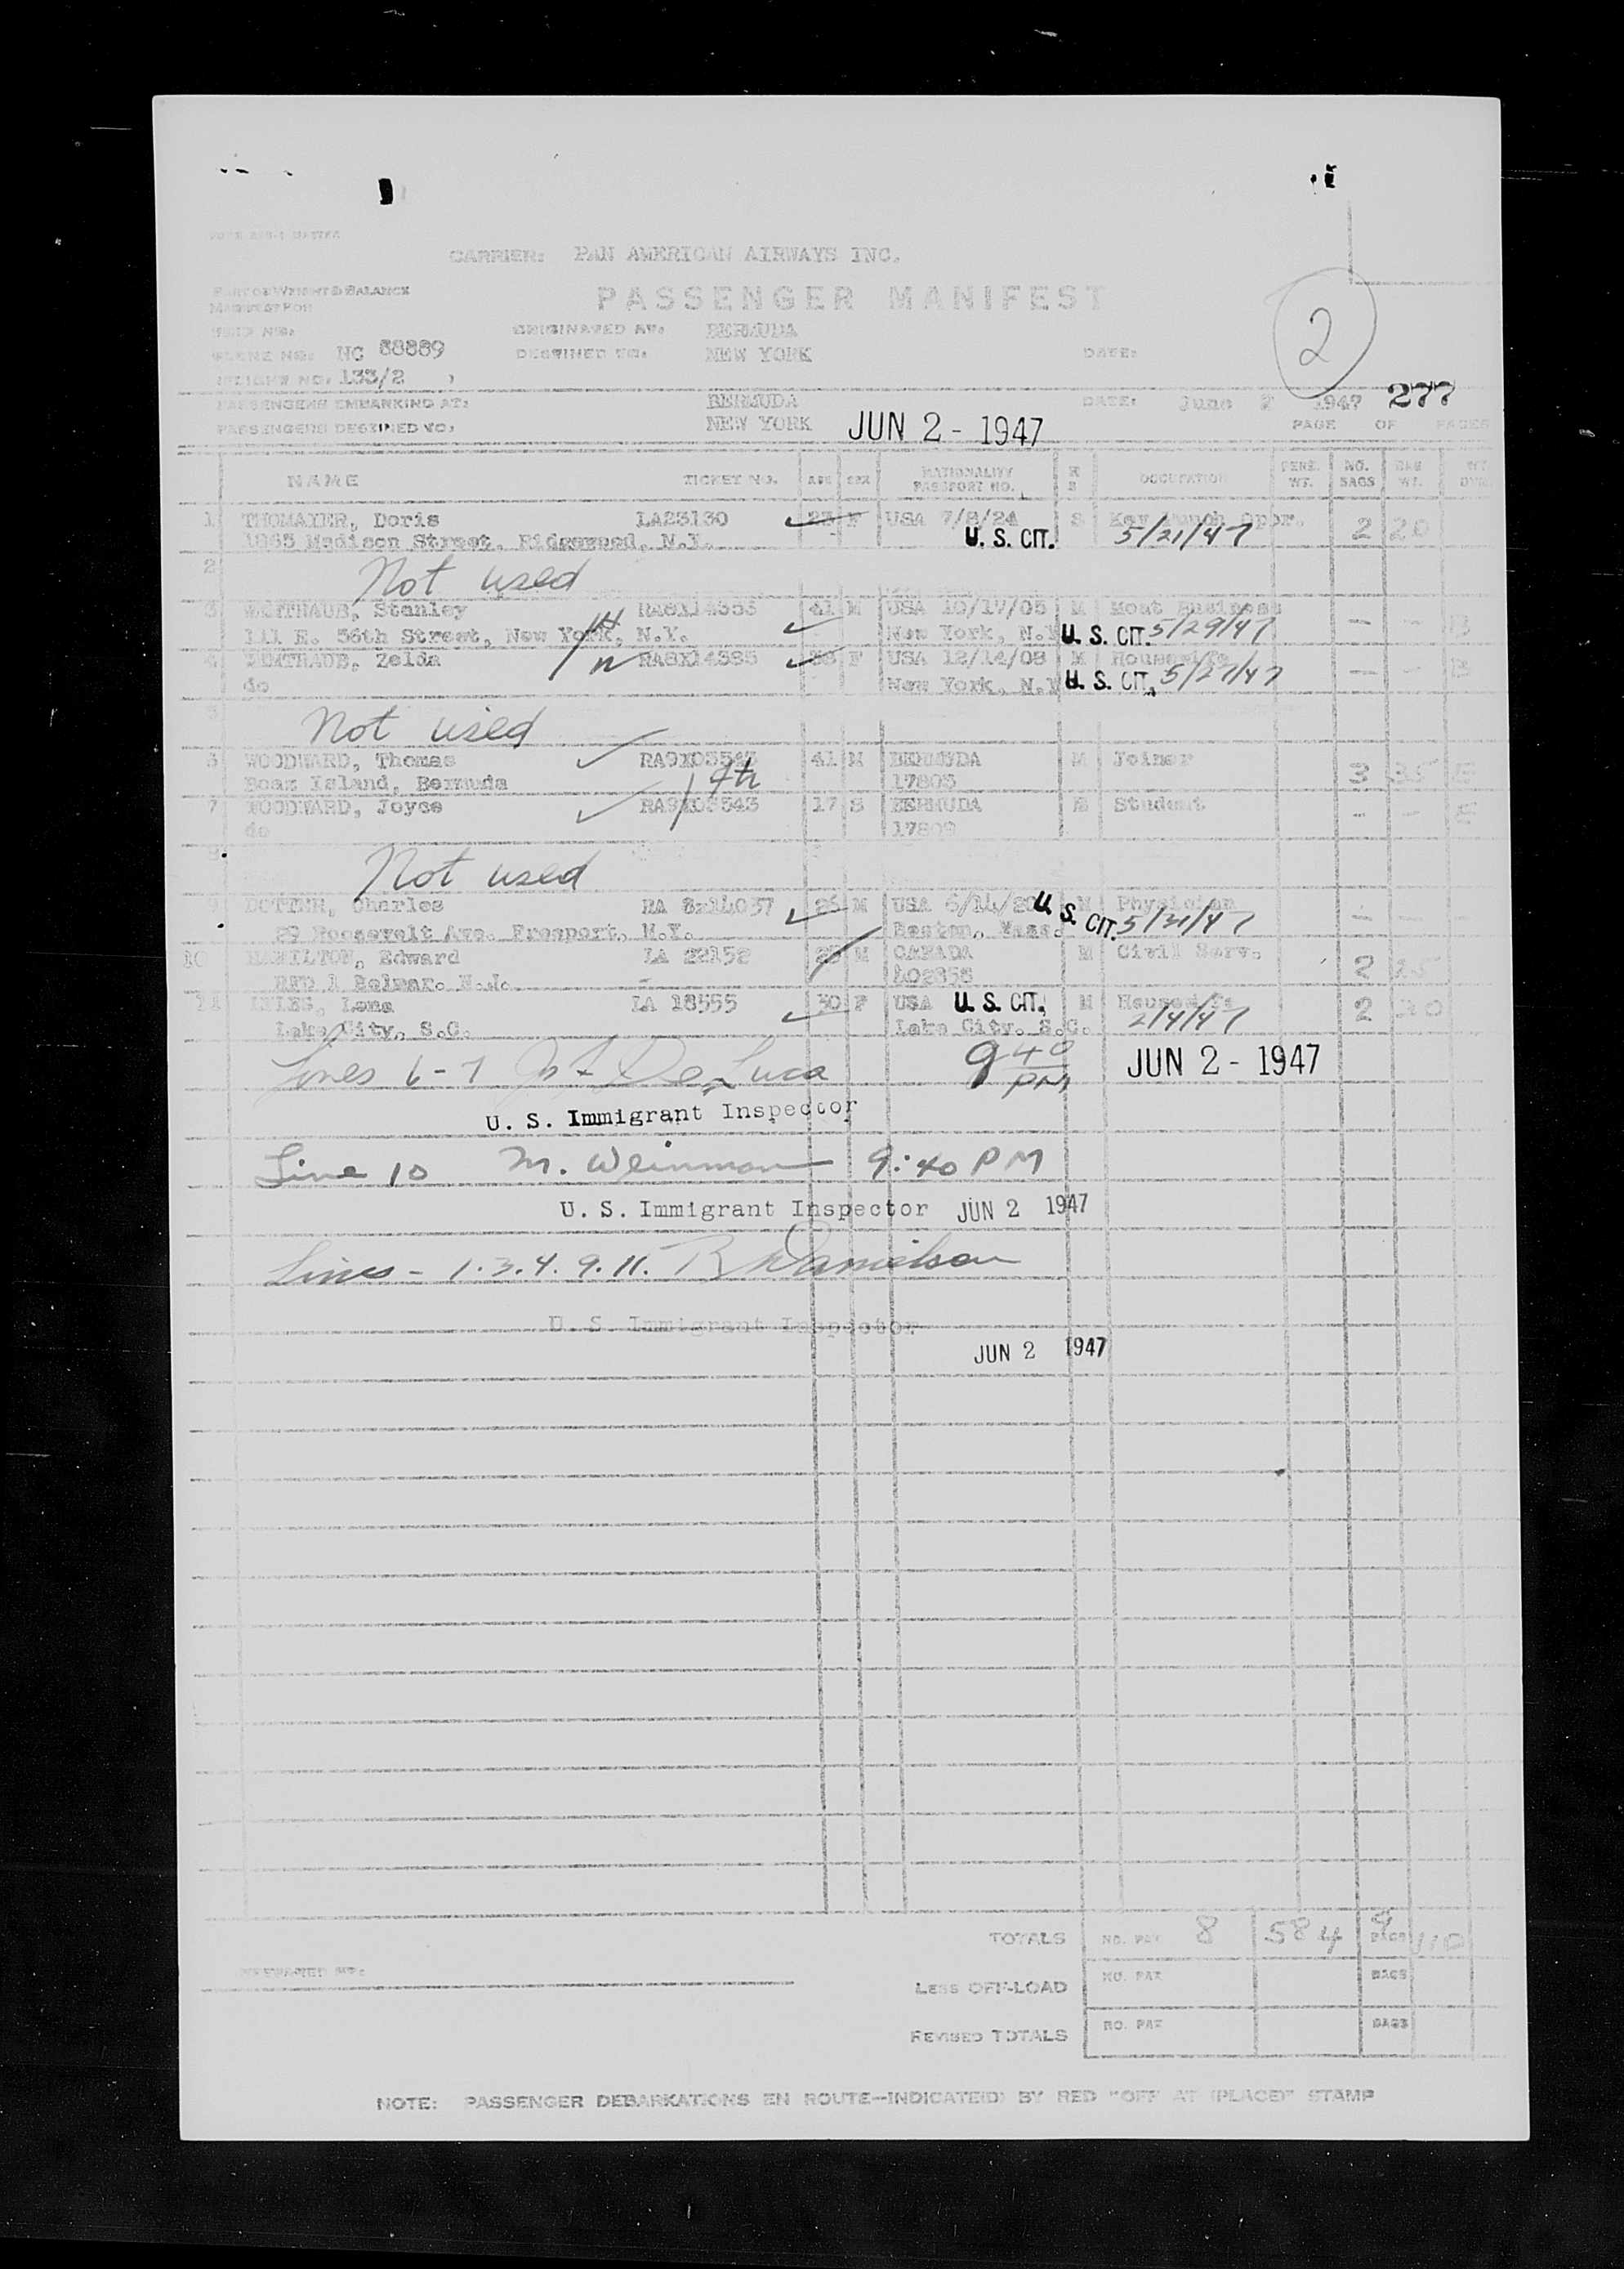 CARRIER: PAN AMERICAN AIRWAYS INC.
PASSENGER MANIFEST
2
ORIGINATED AT: BERMUDA
PLANE NO: NC 88889 DESTINED TO: NEW YORK DATE:
FLIGHT NO. 133/2
PASSENGERS EMBARKING AT: BERMUDA DATE: June 2 1947 277
PASSENGERS DESTINED TO: NEW YORK JUN 2 - 1947 PAGE OF PAGES
NAME TICKET NO. AGE SEX NATIONALITY PASSPORT NO. OCCUPATION PERS. WT. NO. BAGS BAG WT.
1 THOMAYER, Doris LA23130 23 F USA 7/8/24 S Key Punch Opr. 2 20
Madison Street, Ridgewood, N.Y. U. S. CIT. 5/21/47
2 Not used
3 Stanley 41 M USA M Business
111 E. 56th Street, New York, N.Y. New York, N.Y. U. S. CIT. 5/29/47
4 Zelda F USA 12/14/08 M Housewife
do New York, N.Y. U. S. CIT. 5/27/47
5 Not used
6 WOODWARD, Thomas 41 M BERMUDA M Joiner 3 35
Boaz Island, Bermuda 17805
7 WOODWARD, Joyce 17 S BERMUDA Student
do 17809
Not used
9 DOTTER, Charles RA 8x14037 26 M USA 6/14/20 M Physician
29 Roosevelt Ave. Freeport, N.Y. Boston, Mass. U. S. CIT. 5/31/47
10 HAMILTON, Edward LA 22152 M CANADA M Civil Serv. 2
RFD 1 Belmar. N.J.
11 Lena LA 18555 30 F USA U. S. CIT. M Housewife 2 20
Lake City, S.C. Lake City. S.C. 2/4/47
Lines 6-7 De Luca 9 40 PM JUN 2 - 1947
U. S. Immigrant Inspector
Line 10 M. Weinman 9:40 PM
U. S. Immigrant Inspector JUN 2 1947
Lines - 1.3.4.9.11. R Danielson
U. S. Immigrant Inspector
JUN 2 1947
TOTALS NO. PAX 8 584 9 BAGS 110
PREPARED BY:
LESS OFF-LOAD NO. PAX BAGS
REVISED TOTALS NO. PAX BAGS
NOTE: PASSENGER DEBARKATIONS EN ROUTE—INDICATE(D) BY RED "OFF AT (PLACE)" STAMP